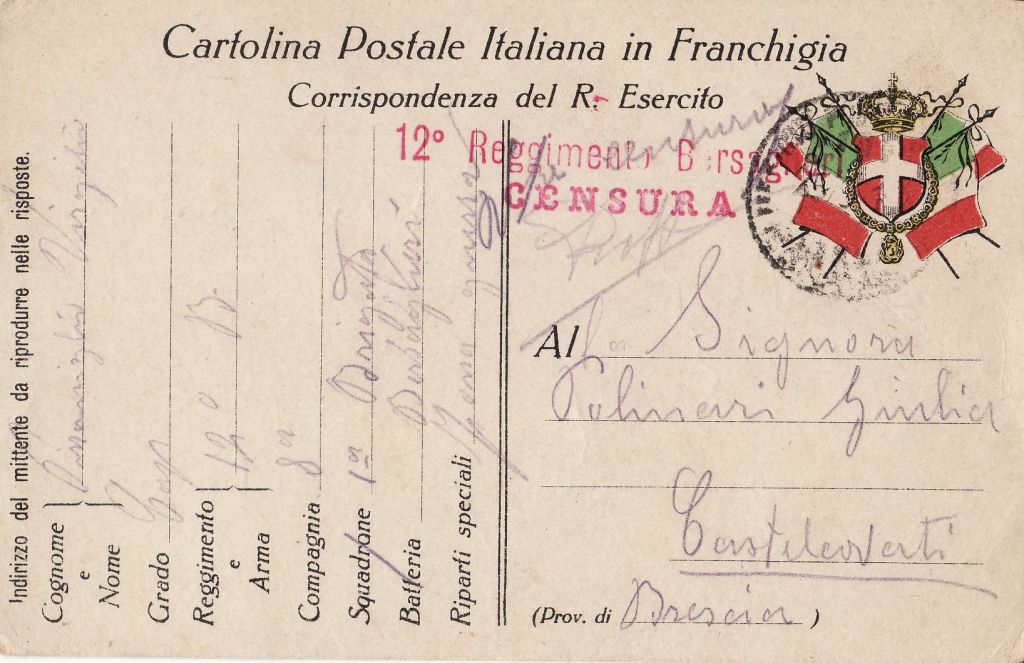 Cartolina Postale Italiana in Franchigia
Corrispondenza del R. Esercito
12º Reggimento Bersaglieri
CENSURA
censura
Indirizzo del mittente da riprodurre nelle risposte.
Cognome e Nome Virgilio
Grado
Reggimento e Arma 12º B
Compagnia 8ª
Squadrone 1ª Brigata
Batteria Bersaglieri
Riparti speciali Zona guerra
Al la Signora
Polinari Giulia
Castelcovati
(Prov. di Brescia)